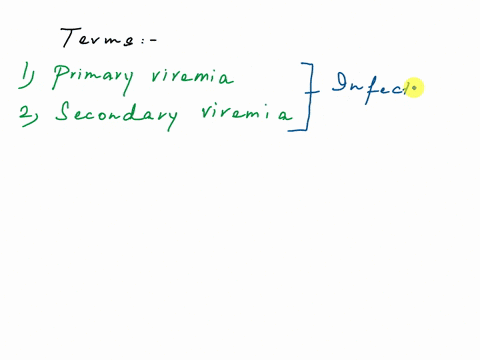 Terms:-
1) Primary viremia
2) Secondary viremia
Infec